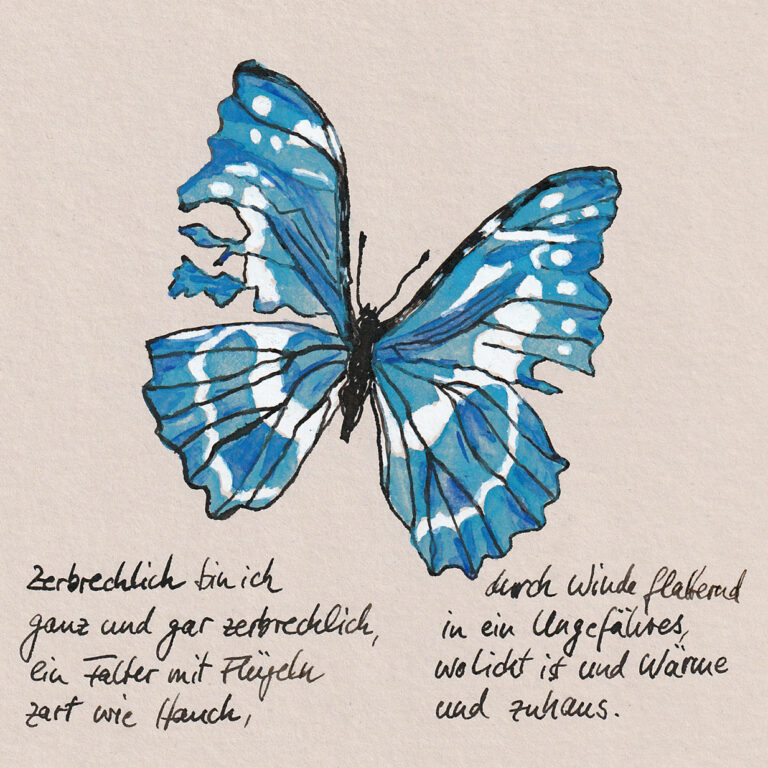 Zerbrechlich bin ich
ganz und gar zerbrechlich,
ein Falter mit Flügeln
zart wie Hauch,
durch Winde flatternd
in ein Ungefähres,
wo Licht ist und Wärme
und zuhaus.